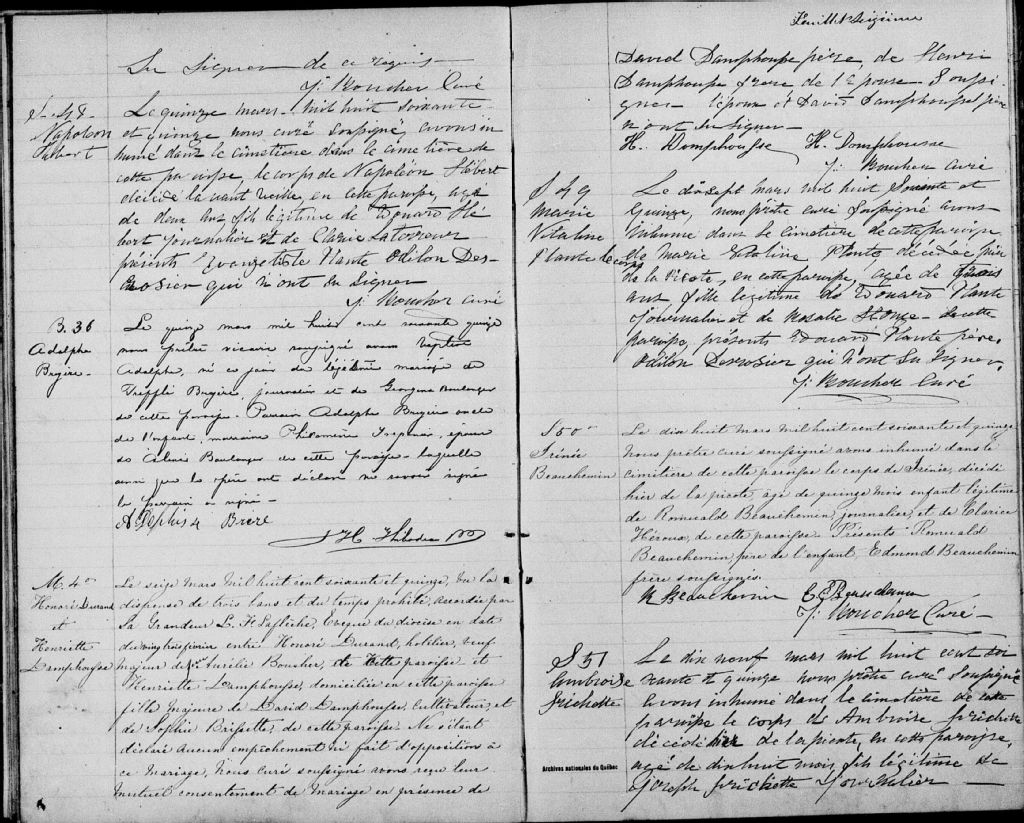 Su signer de ce requis
J. Boucher Curé
S. 48
Napoléon
Hébert
Le quinze mars mil huit soixante
et quinze nous curé soussigné, avons in
humé dans le cimetière dans le cimetière de
cette paroisse, le corps de Napoléon Hébert
décédé la vant veille, en cette paroisse, agé
de deux ans, fils légitime de Edouard Hé
bert journalier et de Clarie
présents Evangeliste Plante Odilon Des-
rosier qui n'ont su signer
J. Boucher curé
B. 36
Adolphe
Brujère
Le quinze mars mil huit cent soixante quinze
nous prêtre vicaire soussigné avons baptisé
Adolphe, né ce jour du légitime mariage de
Trefflé Brujère, journalier et de Georgina Boulanger
de cette paroisse. Parrain Adolphe Brujère oncle
de l'enfant, marraine Philomène épouse
de Boulanger de cette paroisse laquelle
ainsi que le père ont déclaré ne savoir signer
le parrain a signé
J H Thibodeau
M. 4e
Honoré Durand
et
Henriette
Damphousse
Le seize mars mil huit cent soixante et quinze, vu la
dispense de trois bans et du temps prohibé, accordée par
Sa Grandeur L. F. Laflèche, Evêque du diocèse en date
du vingt trois février entre Honoré Durand, hôtelier, veuf
majeur de Aurélie Boucher, de cette paroisse et
Henriette Damphousse, domiciliée en cette paroisse
fille majeure de David Damphousse, cultivateur, et
de Sophie Brissette, de cette paroisse. Ne s'étant
déclaré aucun empêchement ni fait d'opposition à
ce mariage, Nous curé soussigné avons reçu leur
mutuel consentement de mariage en présence de
Feuillet seizième
David Damphousse père, de Henri
Damphousse frère de l'épouse soussi
gnés l'époux et David Damphousse père
n'ont su signer
H. Domphousse H. Domphousse
J. Boucher curé
S 49
Marie
Vitaline
Plante
Le dix sept mars mil huit soixante et
quinze, nous prêtre curé soussigné avons
inhumé dans le cimetière de cette paroisse
le corps de Marie Vitaline Plante décédée hier
de la picote, en cette paroisse, agée de
ans fille légitime de Edouard Plante
journalier et de Rosalie de cette
paroisse, présents Edouard Plante père,
Odilon Desrosier qui n'ont su signer,
J. Boucher Curé
S 50
Irénée
Beauchemin
Le dix huit mars mil huit cent soixante et quinze,
nous prêtre curé soussigné avons inhumé dans le
cimetière de cette paroisse le corps de Irénée, décédé
hier de la picote, âgé de quinze mois enfant légitime
de Romuald Beauchemin, journalier, et de Clarice
Héroux, de cette paroisse. Présents Romuald
Beauchemin, père de l'enfant, Edmond Beauchemin
frère soussignés.
R Beauchemin E. Beauchemin
J. Boucher Curé
S 51
Ambroise
Frichette
Le dix neuf mars mil huit cent soi
xante et quinze nous prêtre curé soussigné
avons inhumé dans le cimetière de cette
paroisse le corps de Ambroise Frichette
décédé hier de la picote, en cette paroisse,
agé de dix huit mois fils légitime de
Joseph Frichette Journalier
Archives nationales du Québec